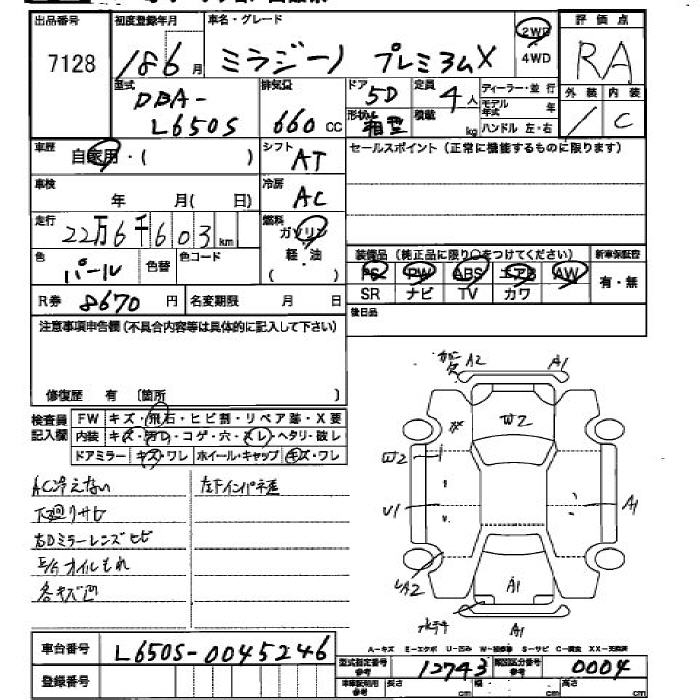 出品番号 初度登録年月 車名・グレード 評価点
7128 18年6月 ミラジーノ プレミアムX 2WD 4WD RA
型式 DBA-L650S 排気量 660 cc
ドア 5D 定員 4人 ディーラー・並行 外装 内装
形状 箱型 積載 kg モデル年式 年 / C
ハンドル 左・右
車歴 自家用・( ) シフト AT セールスポイント (正常に機能するものに限ります)
車検 年 月( 日) 冷房 AC
走行 22万6千603 km 燃料 ガソリン ・ 軽・油 ( )
色 パール 色替 色コード
装備品 (純正品に限り○をつけてください) 新車保証書
PS PW ABS エアB AW 有・無
SR ナビ TV カワ
R券 8670 円 名変期限 月 日
後日品
注意事項申告欄 (不具合内容等は具体的に記入して下さい)
修復歴 有 〔箇所 〕
検査員記入欄 FW キズ・飛石・ヒビ割・リペア跡・X要
内装 キズ・汚れ・コゲ・穴・スレ・ヘタリ・破レ
ドアミラー キズ・ワレ ホイール・キャップ キズ・ワレ
AC冷えない 左下インパネ差
下廻りサビ
右Dミラーレンズヒビ
E/Gオイルもれ
各キズ凹
A2 A1
W2
W2
U1 A1
A2
A1
A1
A-キズ E-エクボ U-凹み W-補修跡 S-サビ C-腐食 XX-交換済
車台番号 L650S-0045246
登録番号
型式指定番号 参考 12743 類別区分番号 参考 0004
長さ cm 幅 cm 高さ cm